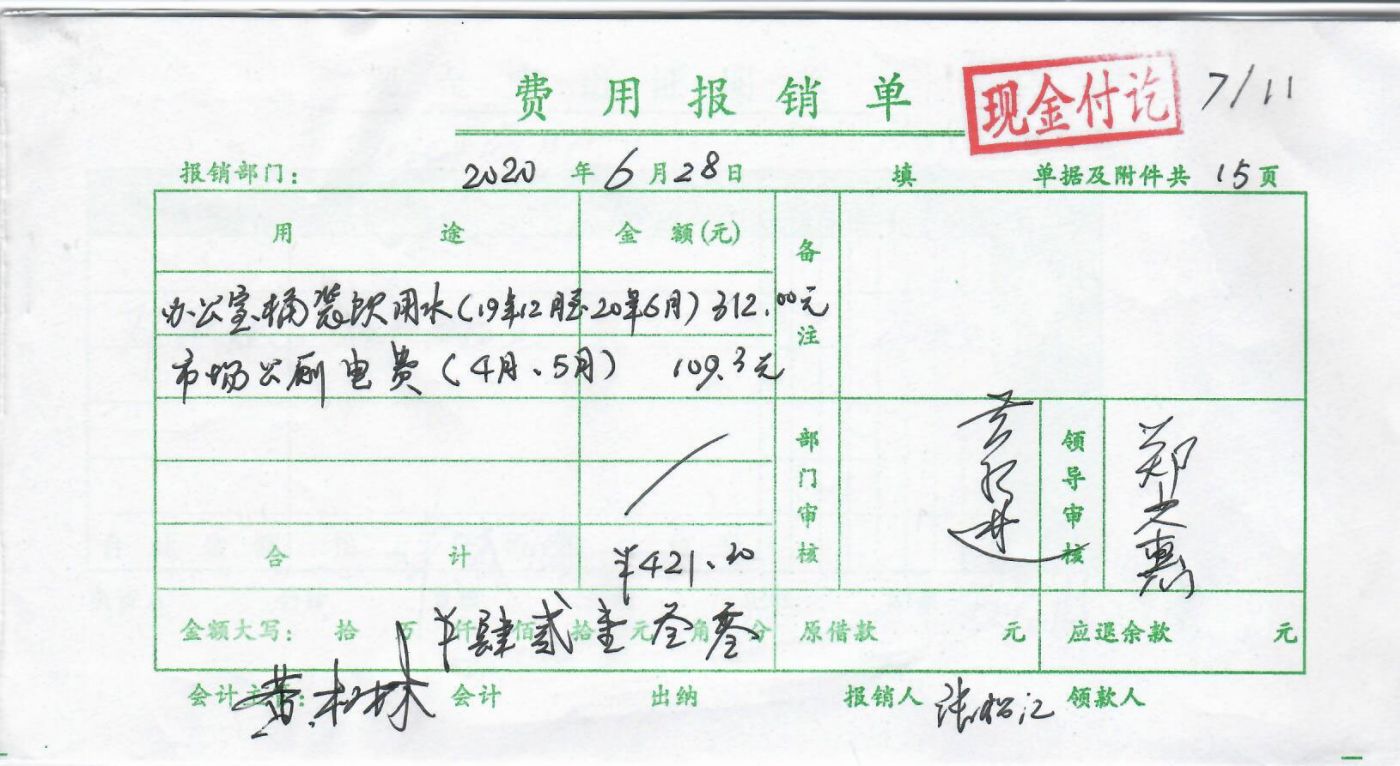 费用报销单 现金付讫 7/11
报销部门: 2020年6月28日 填 单据及附件共15页
用途 金额(元) 备注
办公室桶装饮用水(19年12月至20年6月) 312.00元
市场公厕电费(4月、5月) 109.3元
部门审核 领导审核 郑文惠
合计 ¥421.30
金额大写: 拾万仟佰拾元角分 ¥肆贰壹叁零 原借款 元 应退余款 元
会计主管: 黄松林 会计 出纳 报销人 张松江 领款人